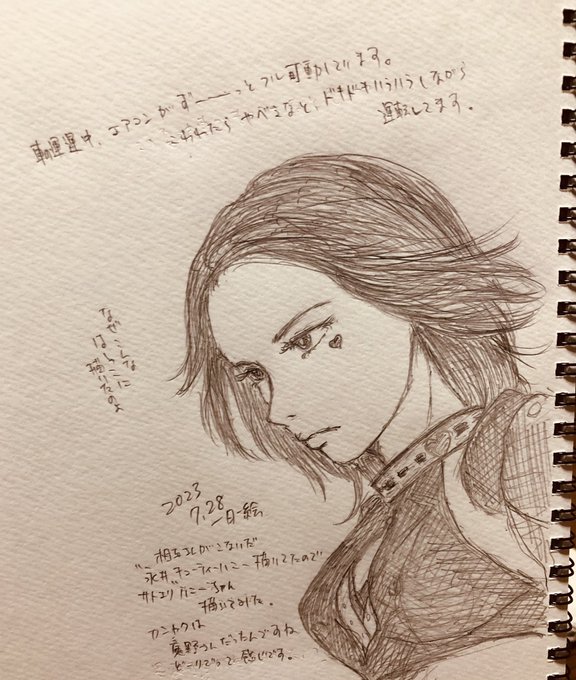 車運転中、エアコンがずーーーっとフル可動しています。
こわれたらやべえなと、ドキドキハラハラしながら
運転してます。
なぜこんなに
はしっこに
描いたのよ
2023
7.28
一日一絵
相互さんがこないだ
永井キューティーハニー描いてたので
サトエリハニーちゃん
描いてみた。
カントクは
庵野さんだったんですね
どーりでって感じです。